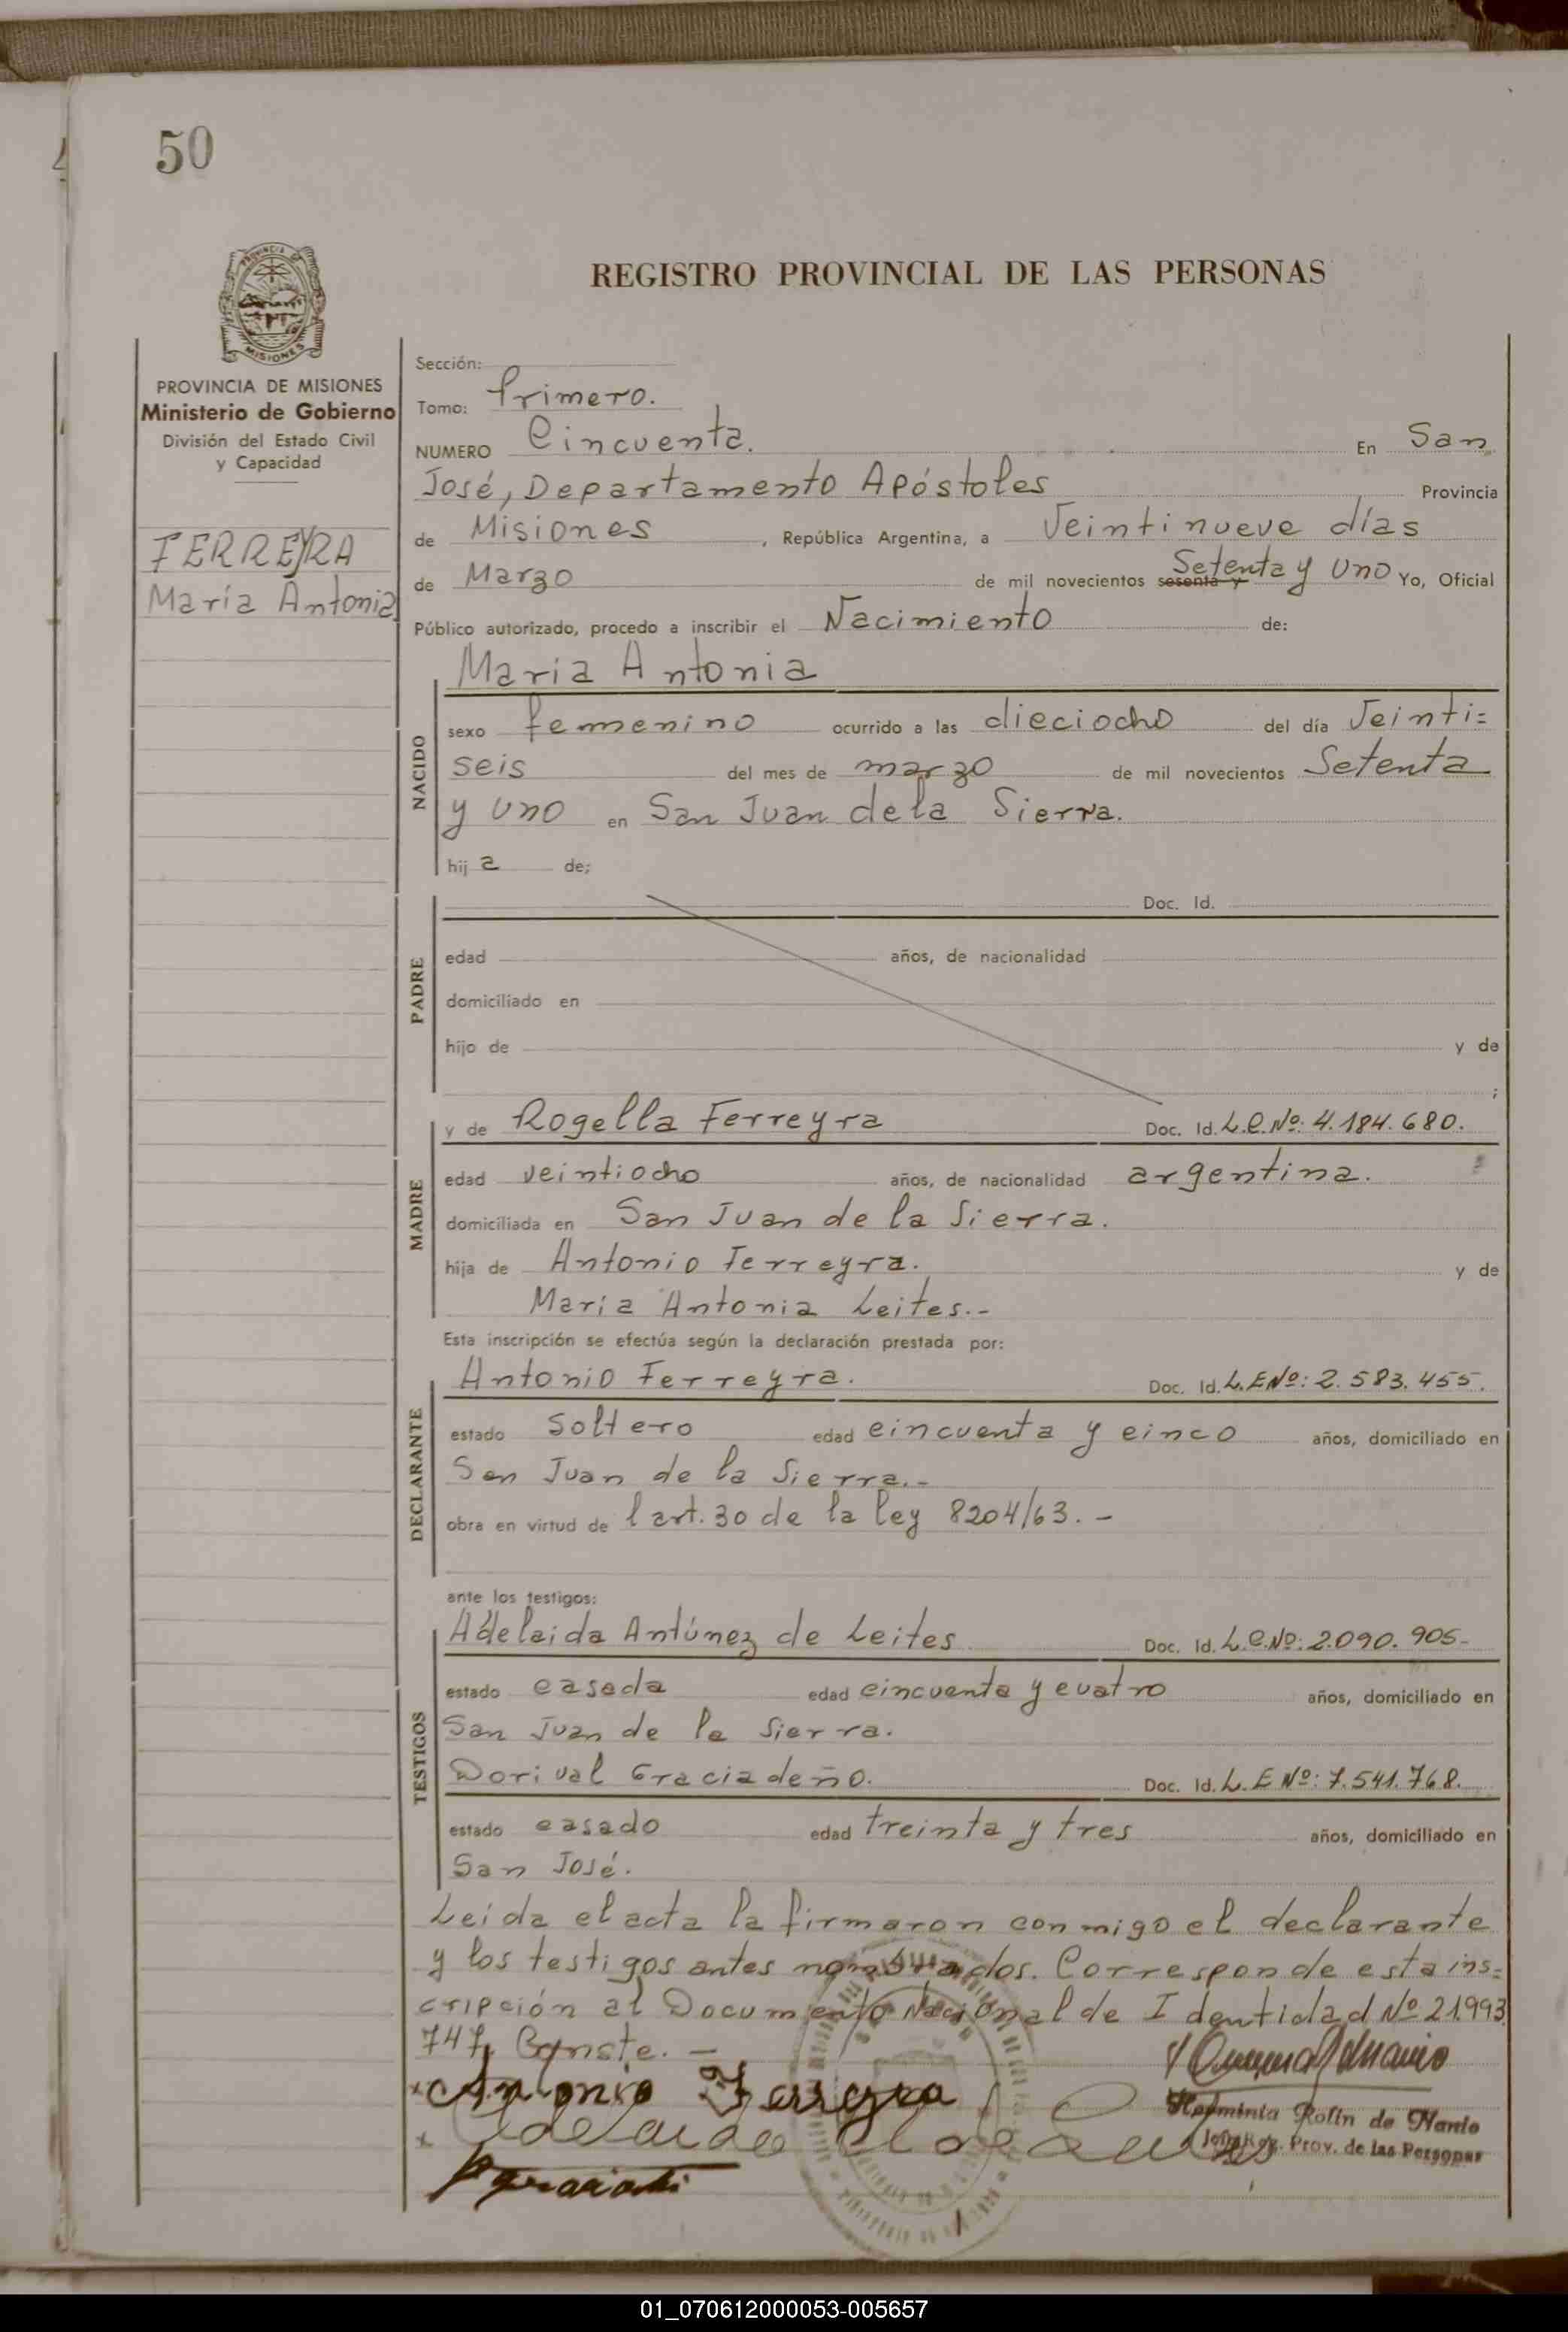 50
REGISTRO PROVINCIAL DE LAS PERSONAS
PROVINCIA DE MISIONES
Ministerio de Gobierno
División del Estado Civil
y Capacidad
FERREYRA
María Antonia
Sección:
Tomo: Primero.
NUMERO Cincuenta. En San
José, Departamento Apóstoles Provincia
de Misiones, República Argentina, a Veintinueve días
de Marzo de mil novecientos sesenta y Setenta y uno Yo, Oficial
Público autorizado, procedo a inscribir el Nacimiento de:
María Antonia
NACIDO
sexo femenino ocurrido a las dieciocho del día Veinti=
seis del mes de marzo de mil novecientos Setenta
y uno en San Juan de la Sierra.
hij a de;
PADRE
Doc. Id.
edad años, de nacionalidad
domiciliado en
hijo de y de
;
MADRE
y de Rogella Ferreyra Doc. Id. L.C.Nº: 4.184.680.
edad veintiocho años, de nacionalidad argentina.
domiciliada en San Juan de la Sierra.
hija de Antonio Ferreyra. y de
María Antonia Leites.-
Esta inscripción se efectúa según la declaración prestada por:
DECLARANTE
Antonio Ferreyra. Doc. Id. L.E Nº: 2.583.455.
estado soltero edad cincuenta y cinco años, domiciliado en
San Juan de la Sierra.-
obra en virtud de l art. 30 de la ley 8204/63.-
ante los testigos:
TESTIGOS
Adelaida Antúnez de Leites Doc. Id. L.C.Nº: 2.090.905-
estado casada edad cincuenta y cuatro años, domiciliado en
San Juan de la Sierra.
Dorival Graciadeño. Doc. Id. L.E Nº: 7.541.768.
estado casado edad treinta y tres años, domiciliado en
San José.
Leida el acta la firmaron conmigo el declarante
y los testigos antes nombrados. Corresponde esta ins=
cripción al Documento Nacional de Identidad Nº 21.993
747. Conste. -
Antonio Ferreyra
Adelaida A de Leites
Herminia Rolin de Nanio
Jefe Reg. Prov. de las Personas
01_070612000053-005657